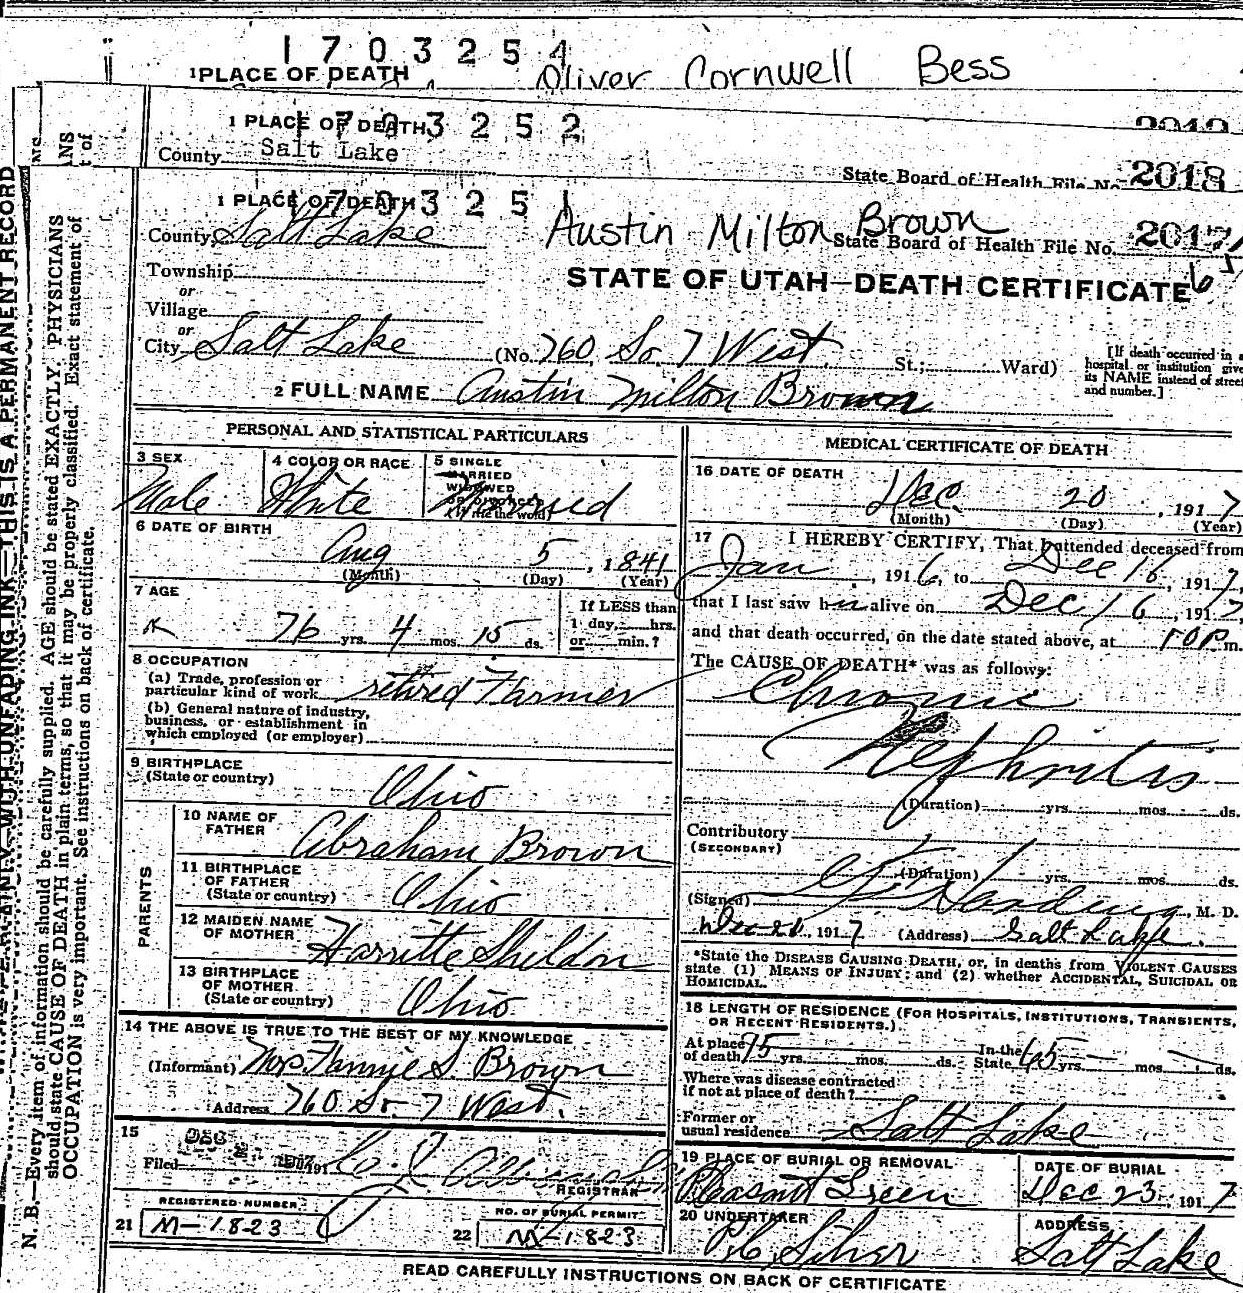 1703254
1 PLACE OF DEATH
Oliver Cornwell Bess
1 PLACE OF DEATH
1703252
County Salt Lake
State Board of Health File No. 2018
1 PLACE OF DEATH
1703251
County Salt Lake
Austin Milton Brown
State Board of Health File No. 2017
Township
or
Village
STATE OF UTAH—DEATH CERTIFICATE
or
City Salt Lake (No. 760 So. 7 West St.; Ward)
[If death occurred in a
hospital or institution give
its NAME instead of street
and number.]
2 FULL NAME Austin Milton Brown
PERSONAL AND STATISTICAL PARTICULARS
3 SEX
Male
4 COLOR OR RACE
White
5 SINGLE
MARRIED
WIDOWED
OR DIVORCED
(Write the word)
Married
6 DATE OF BIRTH
Aug 5, 1841
(Month) (Day) (Year)
7 AGE
76 yrs. 4 mos. 15 ds.
If LESS than
1 day, hrs.
or min.?
8 OCCUPATION
(a) Trade, profession or
particular kind of work retired Farmer
(b) General nature of industry,
business, or establishment in
which employed (or employer)
9 BIRTHPLACE
(State or country) Ohio
PARENTS
10 NAME OF
FATHER Abraham Brown
11 BIRTHPLACE
OF FATHER
(State or country) Ohio
12 MAIDEN NAME
OF MOTHER Harritte Sheldon
13 BIRTHPLACE
OF MOTHER
(State or country) Ohio
14 THE ABOVE IS TRUE TO THE BEST OF MY KNOWLEDGE
(Informant) Mrs. Fannie S. Brown
Address 760 So. 7 West.
15
Filed 191
REGISTRAR
REGISTERED NUMBER
21 M-1823
NO. OF BURIAL PERMIT
22 M-1823
MEDICAL CERTIFICATE OF DEATH
16 DATE OF DEATH
Dec. 20, 1917
(Month) (Day) (Year)
17 I HEREBY CERTIFY, That I attended deceased from
Jan, 1916, to Dec 16, 1917,
that I last saw him alive on Dec 16, 1917,
and that death occurred, on the date stated above, at m.
The CAUSE OF DEATH* was as follows:
Chronic
Nephritis
(Duration) yrs. mos. ds.
Contributory
(SECONDARY)
(Duration) yrs. mos. ds.
(Signed) Harding, M. D.
1917 (Address) Salt Lake.
*State the DISEASE CAUSING DEATH, or, in deaths from VIOLENT CAUSES
state (1) MEANS OF INJURY; and (2) whether ACCIDENTAL, SUICIDAL OR
HOMICIDAL.
18 LENGTH OF RESIDENCE (FOR HOSPITALS, INSTITUTIONS, TRANSIENTS,
OR RECENT RESIDENTS.)
At place
of death 15 yrs. mos. ds.
In the
State 65 yrs. mos. ds.
Where was disease contracted
if not at place of death?
Former or
usual residence Salt Lake
19 PLACE OF BURIAL OR REMOVAL
Pleasant Green
DATE OF BURIAL
Dec 23, 1917
20 UNDERTAKER
ADDRESS
Salt Lake
READ CAREFULLY INSTRUCTIONS ON BACK OF CERTIFICATE
WITH UNFADING INK—THIS IS A PERMANENT RECORD
N. B.—Every item of information should be carefully supplied. AGE should be stated EXACTLY. PHYSICIANS
should state CAUSE OF DEATH in plain terms, so that it may be properly classified. Exact statement of
OCCUPATION is very important. See instructions on back of certificate.